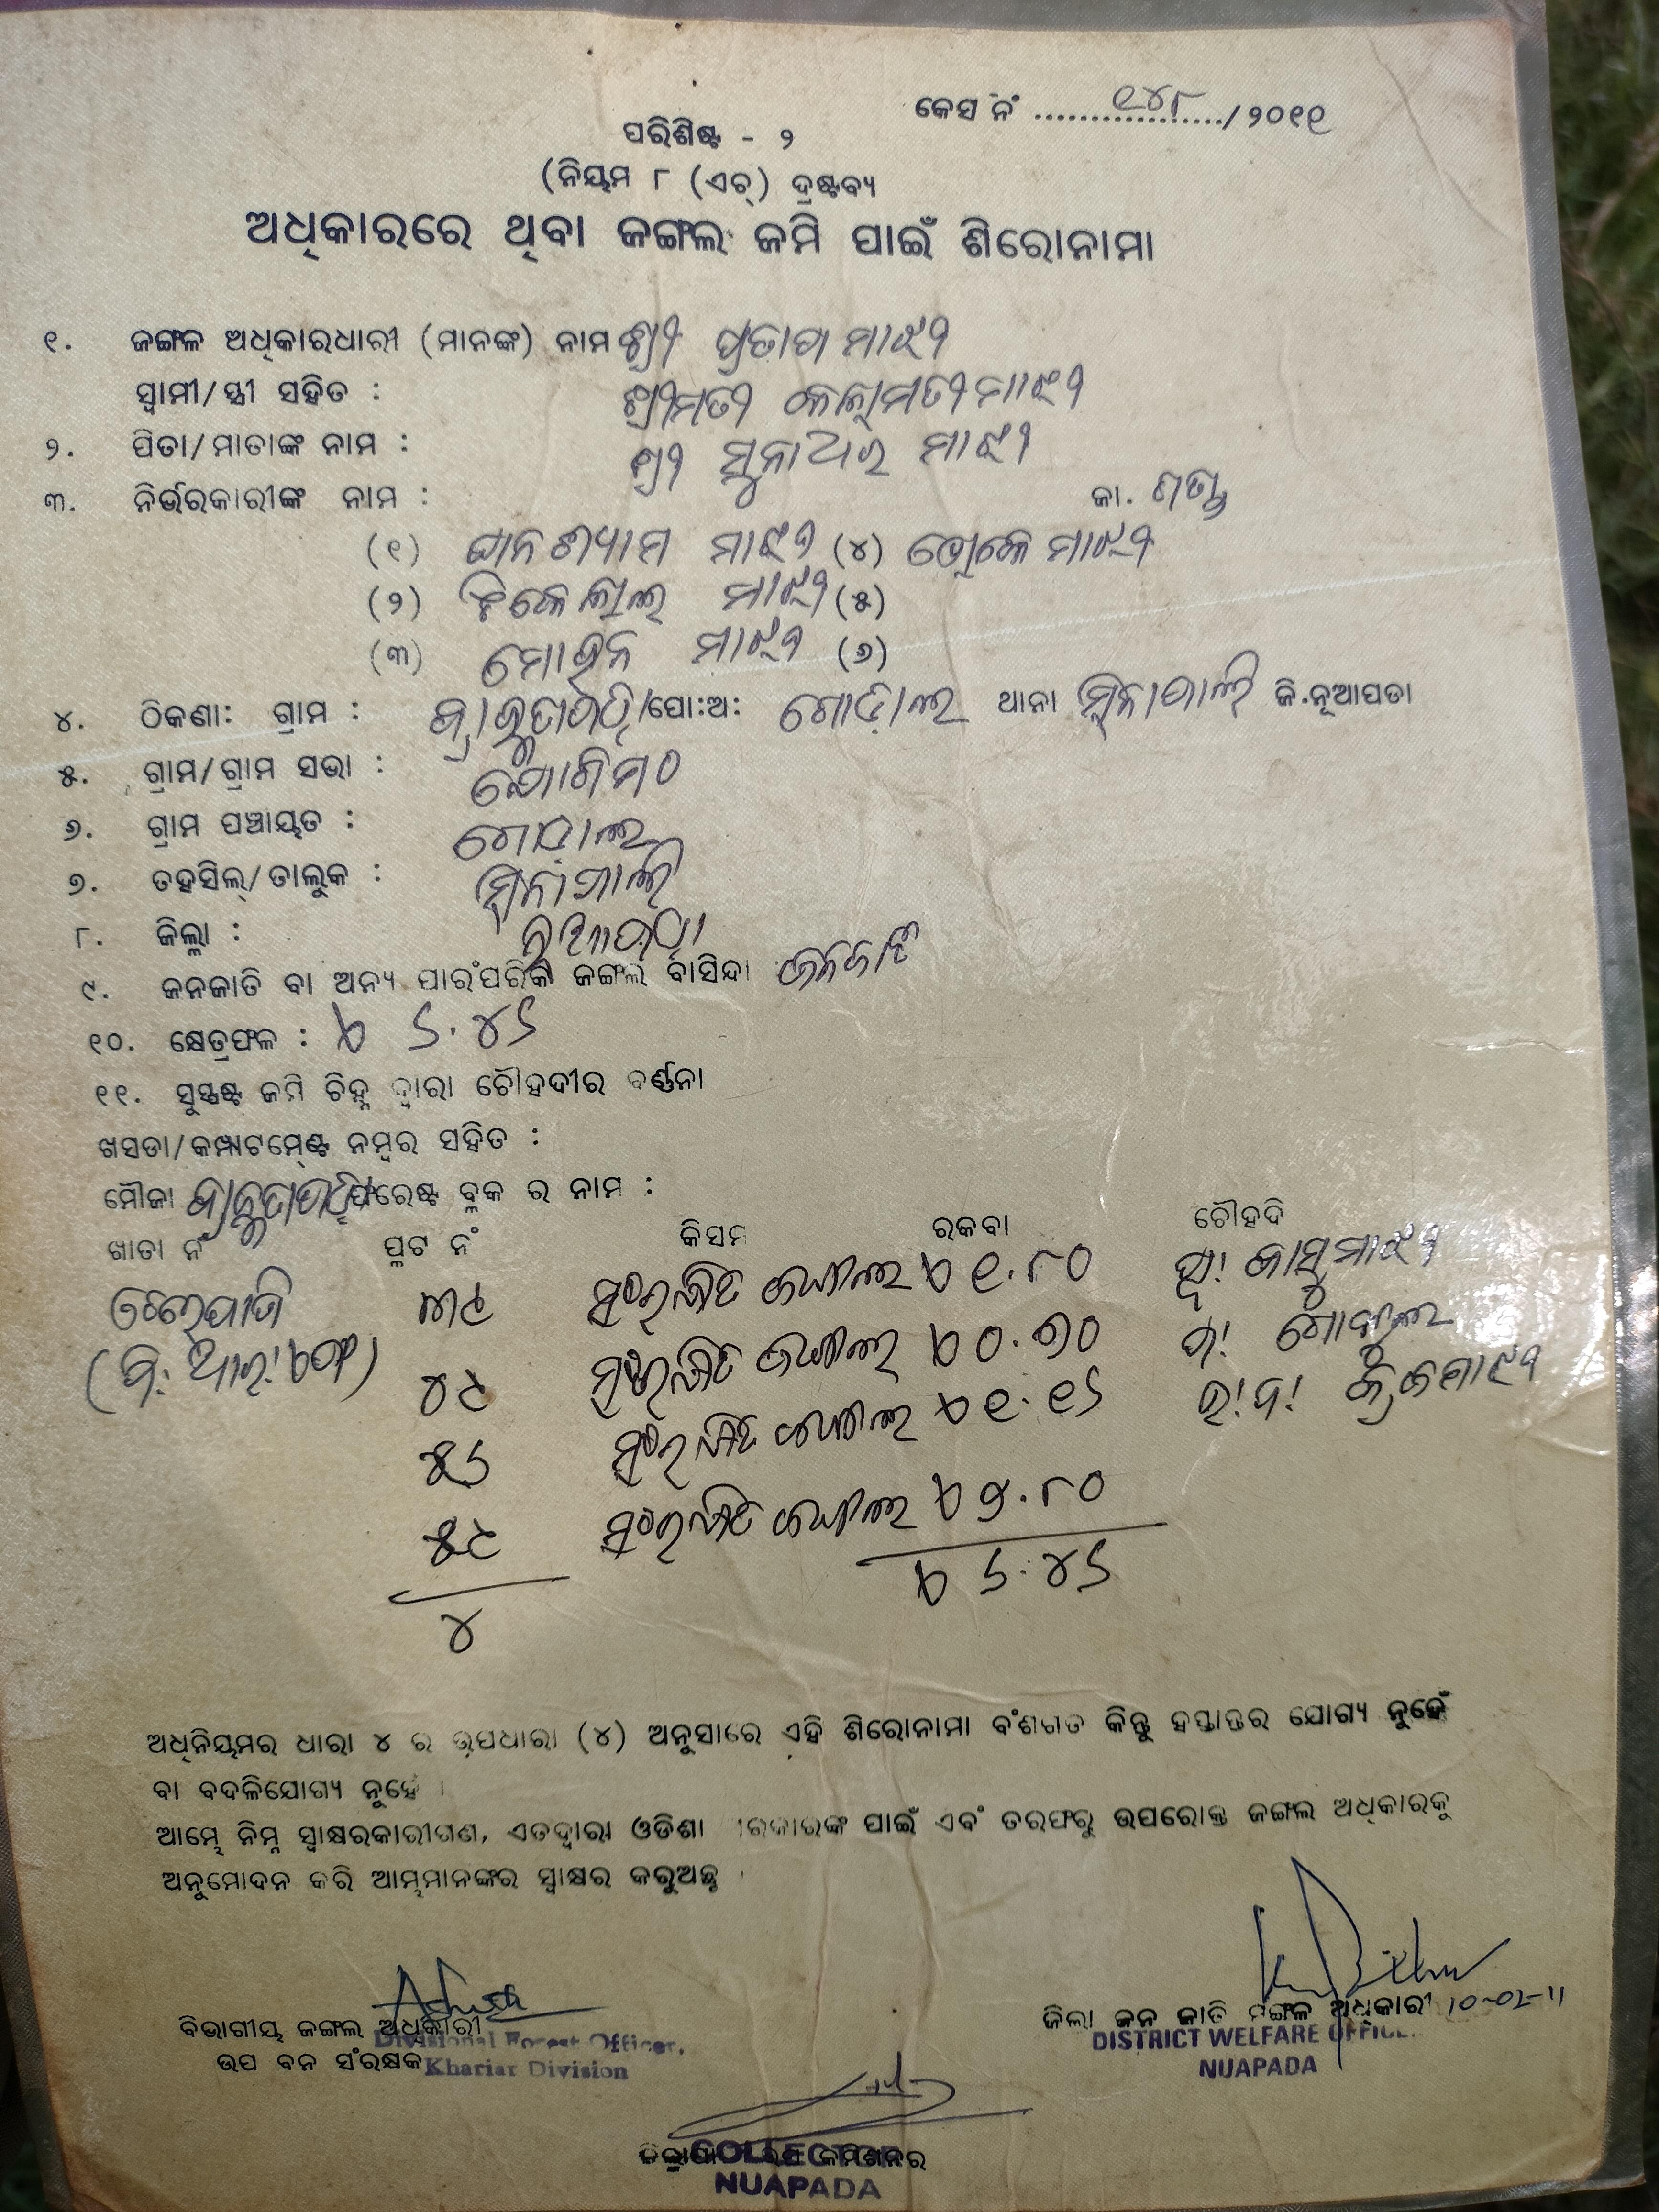 କେସ ନଂ ୧୪୮/୨୦୧୧
ପରିଶିଷ୍ଟ - ୨
(ନିୟମ ୮ (ଏଚ୍) ଦ୍ରଷ୍ଟବ୍ୟ
ଅଧିକାରରେ ଥିବା ଜଙ୍ଗଲ ଜମି ପାଇଁ ଶିରୋନାମା
୧. ଜଙ୍ଗଳ ଅଧିକାରଧାରୀ (ମାନଙ୍କ) ନାମ ଶ୍ରୀ ପ୍ରତାପ ମାଝୀ
ସ୍ୱାମୀ/ସ୍ତ୍ରୀ ସହିତ : ଶ୍ରୀମତୀ ମାଝୀ
୨. ପିତା/ମାତାଙ୍କ ନାମ : ଶ୍ରୀ ସୁନାଅର ମାଝୀ
୩. ନିର୍ଭରକାରୀଙ୍କ ନାମ : ଜା.
(୧) ଘାନଶ୍ୟାମ ମାଝୀ (୪) ମାଝୀ
(୨) ମାଝୀ (୫)
(୩) ମୋହନ ମାଝୀ (୬)
୪. ଠିକଣା: ଗ୍ରାମ : /ପୋ:ଅ: ଗୋଡ଼ାଲ ଥାନା ସିନାପାଲି ଜି.ନୂଆପଡା
୫. ଗ୍ରାମ/ଗ୍ରାମ ସଭା :
୬. ଗ୍ରାମ ପଞ୍ଚାୟତ : ଗୋଡ଼ାଲ
୭. ତହସିଲ୍/ତାଲୁକ : ସିନାପାଲି
୮. ଜିଲ୍ଲା : ନୂଆପଡ଼ା
୯. ଜନଜାତି ବା ଅନ୍ୟ ପାରଂପରିକ ଜଙ୍ଗଲ ବାସିନ୍ଦା ଜନଜାତି
୧୦. କ୍ଷେତ୍ରଫଳ : ୫ ୬.୪୬
୧୧. ସୁସ୍ପଷ୍ଟ ଜମି ଚିହ୍ନ ଦ୍ୱାରା ଚୌହଦୀର ବର୍ଣ୍ଣନା
ଖସଡା/କମ୍ପାଟମେଣ୍ଟ ନମ୍ବର ସହିତ :
ମୌଜା ଫରେଷ୍ଟ ବ୍ଲକ ର ନାମ :
ଖାତା ନଂ ପ୍ଲଟ ନଂ କିସମ ରକବା ଚୌହଦି
୩୯ ସଂରକ୍ଷିତ ଜଙ୍ଗଲ ୧.୮୦ ମାଝୀ
୪୯ ସଂରକ୍ଷିତ ଜଙ୍ଗଲ ୦.୭୦
୫୬ ସଂରକ୍ଷିତ ଜଙ୍ଗଲ ୧.୧୬
୫୯ ସଂରକ୍ଷିତ ଜଙ୍ଗଲ ୨.୮୦
୪ ୬.୪୬
ଅଧିନିୟମର ଧାରା ୪ ର ଉପଧାରା (୪) ଅନୁସାରେ ଏହି ଶିରୋନାମା ବଂଶଗତ କିନ୍ତୁ ହସ୍ତାନ୍ତର ଯୋଗ୍ୟ ନୁହେଁ
ବା ବଦଳିଯୋଗ୍ୟ ନୁହେଁ ।
ଆମ୍ଭେ ନିମ୍ନ ସ୍ୱାକ୍ଷରକାରୀଗଣ, ଏତଦ୍ୱାରା ଓଡିଶା ସରକାରଙ୍କ ପାଇଁ ଏବଂ ତରଫରୁ ଉପରୋକ୍ତ ଜଙ୍ଗଲ ଅଧିକାରକୁ
ଅନୁମୋଦନ କରି ଆମ୍ଭମାନଙ୍କର ସ୍ୱାକ୍ଷର କରୁଅଛୁ
ବିଭାଗୀୟ ଜଙ୍ଗଲ ଅଧିକାରୀ
ଉପ ବନ ସଂରକ୍ଷକ
Divisional Forest Officer,
Khariar Division
ଜିଲା ଜନ ଜାତି ମଙ୍ଗଳ ଅଧିକାରୀ 10-02-11
DISTRICT WELFARE OFFICER
NUAPADA
COLLECTOR
NUAPADA